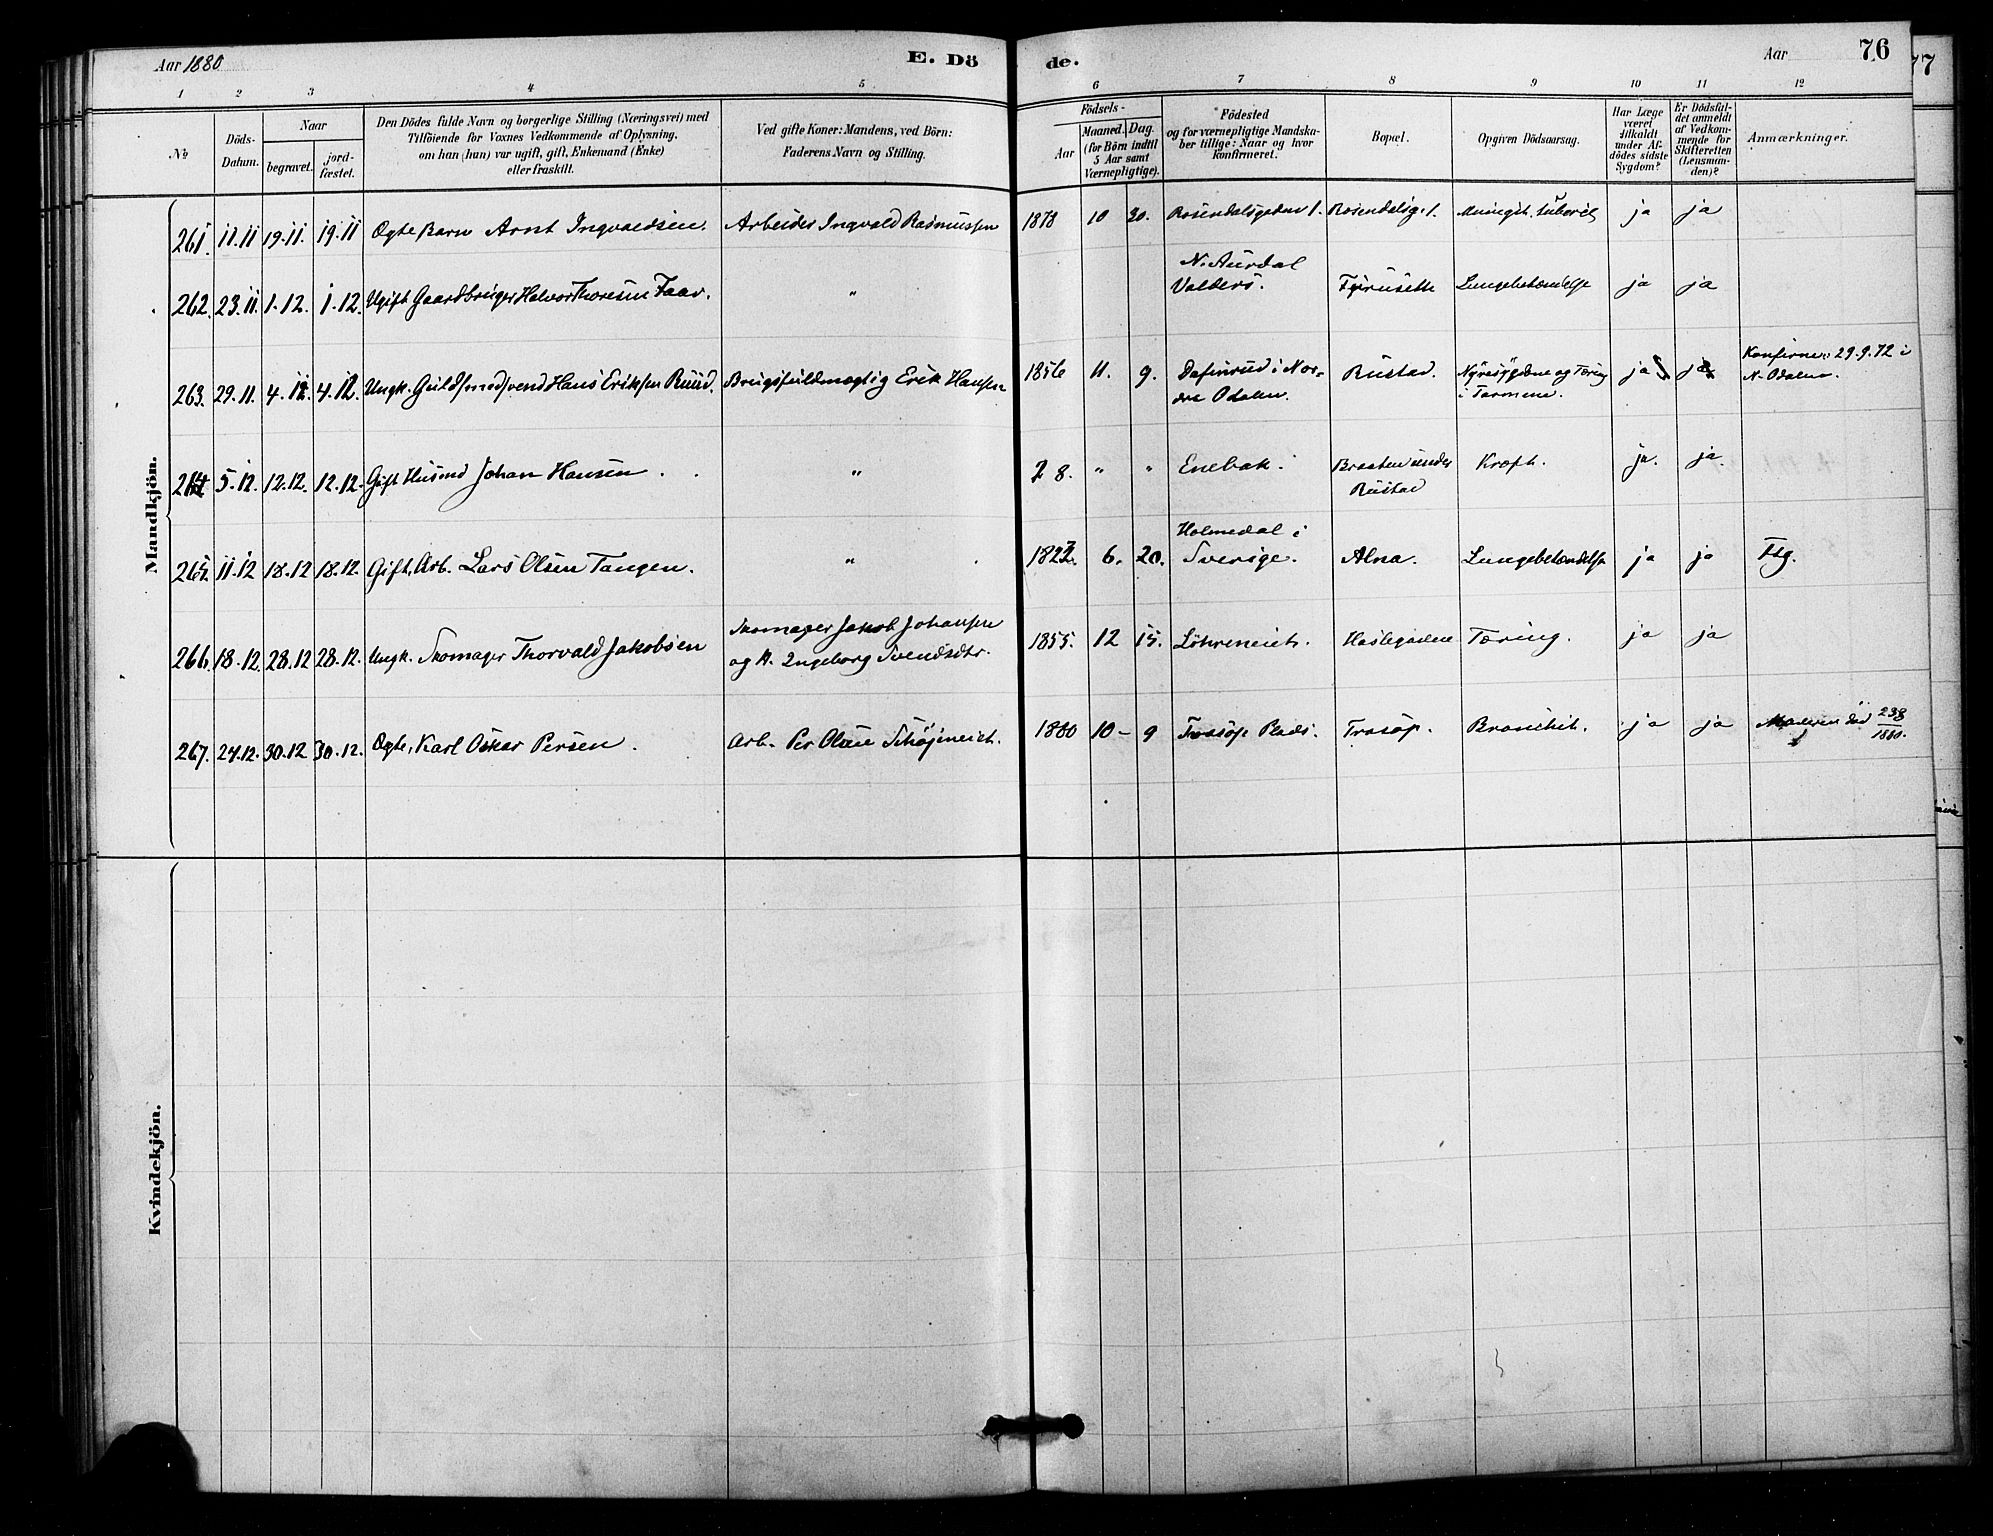 Aar 1880
E. Dö
de.
Aar
76
77
1 2 3 4 5 6 7 8 9 10 11 12
No
Döds-
Datum.
Naar
begravet.
jord-
fæstet.
Den Dödes fulde Navn og borgerlige Stilling (Næringsvei) med
Tilföiende for Voxnes Vedkommende af Oplysning,
om hun (han) var ugift, gift, Enkemand (Enke)
eller fraskilt.
Ved gifte Koner: Mandens, ved Börn:
Faderens Navn og Stilling.
Födsels-
Aar
Maaned. Dag.
(for Börn indtil
5 Aar samt
Værnepligtige).
Födested
og for værnepligtige Mandska-
ber tillige: Naar og hvor
konfirmeret.
Bopæl.
Opgiven Dödsaarsag.
Har Læge
været
tilkaldt
under Af-
dödes sidste
Sygdom?
Er Dödsfal-
det anmeldt
af Vedkom-
mende for
Skifteretten
(Lensman-
den)?
Anmærkninger.
Mandkjön.
261. 11.11 19.11. 19.11 Ægte Barn Arnt Ingvaldsen. Arbeider Ingvald Rasmussen 1878 10 30. Rosendalsgaden 1. Rosendalsg. 1. Meningit. tubercl ja ja
N. Aurdal
262. 23.11. 1.12. 1.12. Ugift Gaardbruger Halvor Thoresen Faav. " Valders. Furuseth Lungebetændelse ja ja
Konfirmer. 29.9.72 i
263. 29.11. 4.12. 4.12. Ungk. Guldsmedsvend Hans Eriksen Ruud. Brugsfuldmægtig Erik Hansen 1856 11. 9. i Nor- Rustad. Nyresygdom og Tæring ja ja N. Odalen.
dre Odalen. i Tarmene.
264 5.12. 12.12. 12.12. Gift Husmd Johan Hansen. " 28. " " Enebak. Braaten under Kræft. ja. ja.
Rustad
Holmedal i
265. 11.12 18.12 18.12. Gift, Arb. Lars Olsen Tangen. " 6. 20. Sverige. Alna. Lungebetændelse ja ja Ftg.
Skomager Jakob Johansen
266. 18.12. 28.12 28.12. Ungk. Skomager Thorvald Jakobsen og H. Ingeborg Svendsdtr. 1855. 12 15. Tæring. ja ja
267. 27.12. 30.12 30.12. Ægte, Karl Oskar Persen. Arb. Per Olsen 1880 10 - 9 Trosop. Bronchit. ja ja Moderen död 238/1880.
Kvindekjön.